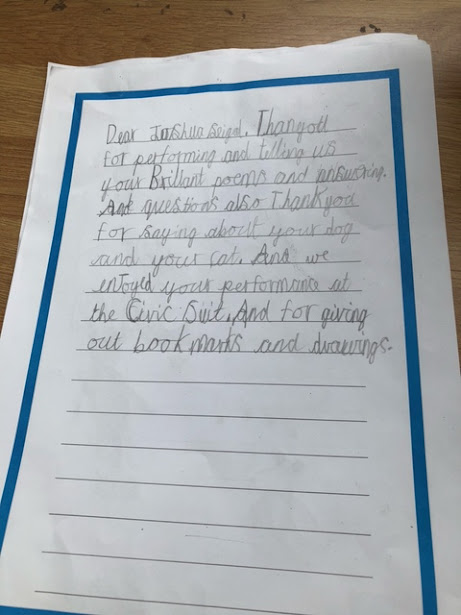 Dear Joshua Seigal, Thankyou
for performing and telling us
your Brillant poems and answering.
And questions also Thankyou
for saying about your dog
and your cat. And we
enjoyed your performance at
the Civic Suit. And for giving
out bookmarks and drawings.